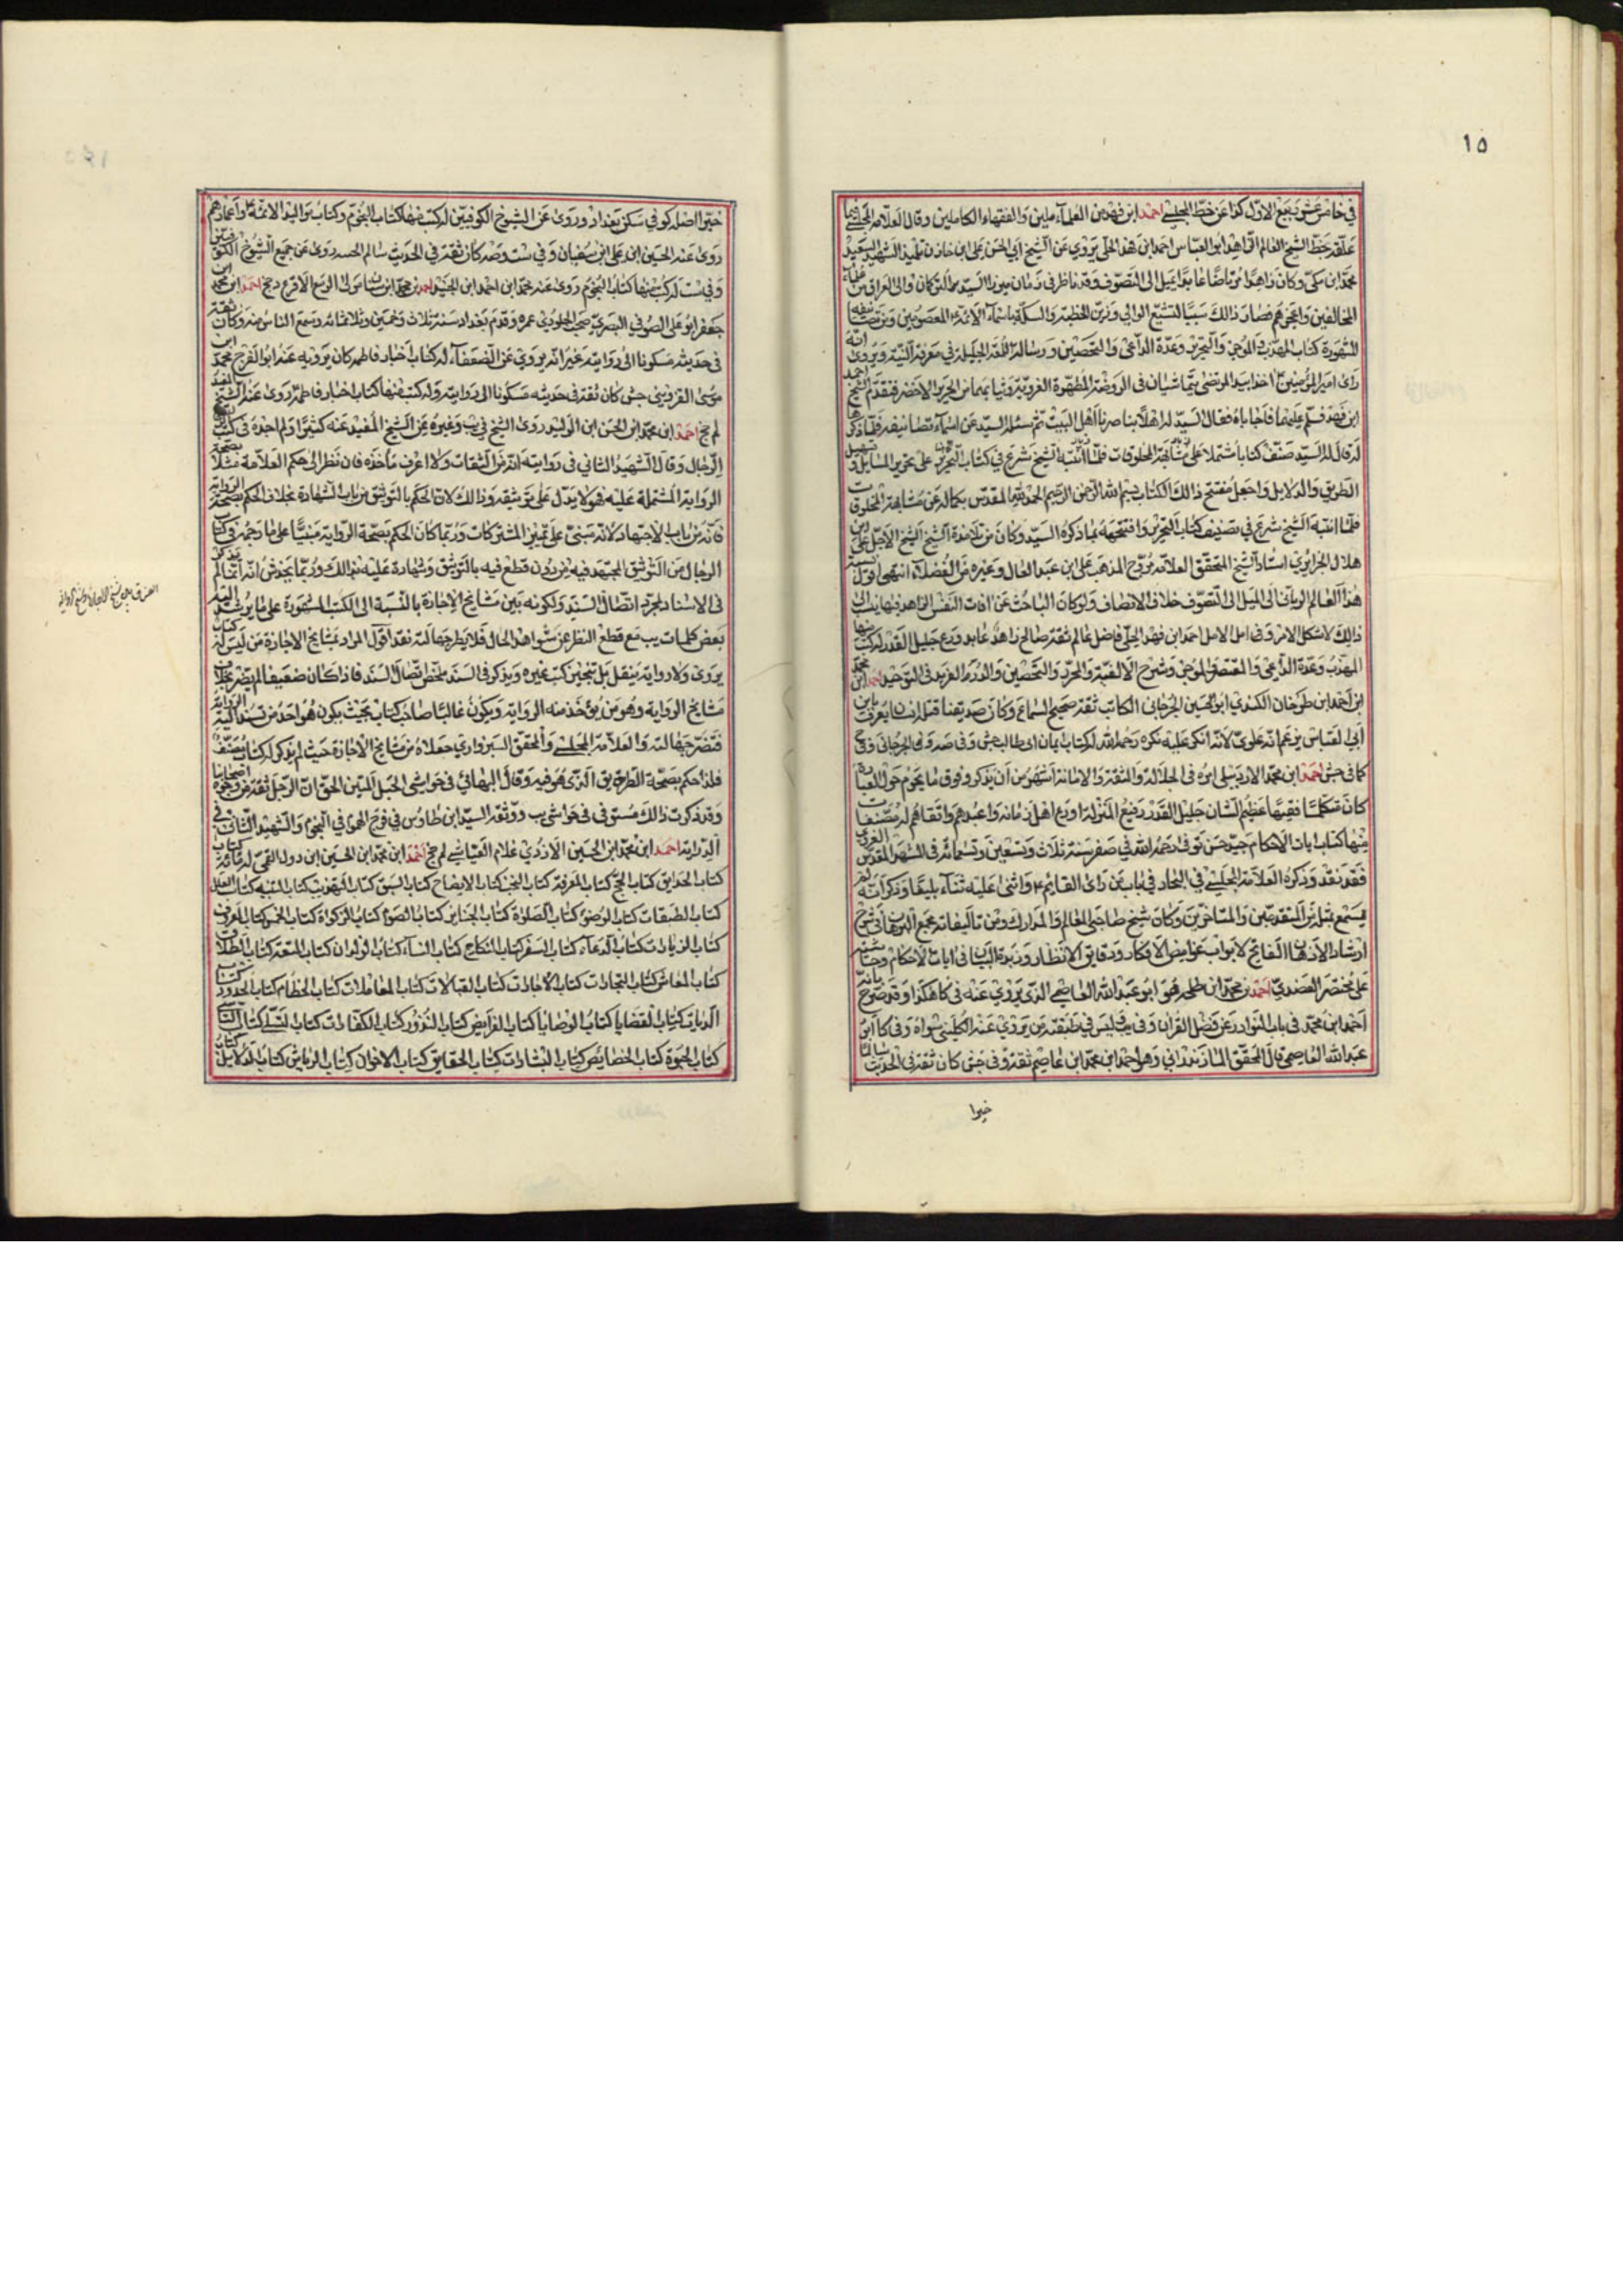 ١٥
في خامس عشر ربيع الاول كذا عن خط المجلسي احمد ابن فهد من العلماء عاملين والفقهاء الكاملين وقال العلامة المجلسي فيما
علقه بخط الشيخ العالم الزاهد ابو العباس احمد ابن فهد الحلي يروي عن الشيخ ابي الحسن علي ابن خازن تلميذ الشهيد السعيد
محمد ابن مكي وكان زاهدا مرتاضا عابدا يميل الى التصوف وقد ناظر في زمان ميرزا اسبند التركمان والي العراق من علماء
المخالفين واعجزهم فصار ذالك سببا لتشيع الوالي وزين الخطبة والسكة باسماء الائمة المعصومين ومن تصانيفه
المشهورة كتاب المهذب والموجز والتحرير وعدة الداعي والتحصين ورسالة اللمعة الجليلة في معرفة النية ويروى انه
راى امير المؤمنين اخذا بيد المرتضى يتماشيان في الروضة المطهرة الغروية وثيابهما من الحرير الاخضر فتقدم الشيخ احمد
ابن فهد فسلم عليهما فاجاباه فقال السيد له اهلا بناصرنا اهل البيت ثم سئله السيد عن اسماء تصانيفه فلما ذكرها
له قال له السيد صنف كتابا مشتملا على تحرير المسايل وتسهيل
الطريق والدلايل واجعل مفتتح ذالك الكتاب بسم الله الرحمن الرحيم الحمد لله المقدس بكماله عن مشابهة المخلوقات
فلما انتبه الشيخ شرع في تصنيف كتاب التحرير وافتتحه بما ذكره السيد وكان من تلامذة الشيخ الشيخ الاجل علي ابن
هلال الجزايري استاد الشيخ المحقق العلامة مروج المذهب علي ابن عبد العال وغيره من الفضلاء انتهى اقول نسبة
هذا العالم الرباني الى الميل الى التصوف خلاف الانصاف ولو كان الباحث عن افات النفس الزاهد فيها ينسب الى
ذالك لاشكل الامر وفي امل الامل احمد ابن فهد الحلي فاضل عالم ثقة صالح زاهد عابد ورع جليل القدر له كتب منها
المهذب وعدة الداعي والمقتصر والموجز وشرح الالفية والمحرر والتحصين والدرر الفريد في التوحيد احمد ابن محمد
ابن احمد ابن طرخان الكندي ابو الحسين الجرجاني الكاتب ثقة صحيح السماع وكان صديقنا قتله انسان يعرف بابن
ابي العباس يزعم انه علوي لانه انكر عليه نكرة رحمه الله له كتاب ايمان ابي طالب جش وفي صه وفي الجرجاني وفي
كما في جش احمد ابن محمد الاردبيلي امره في الجلالة والثقة والامانة اشهر من ان يذكر وفوق ما يحوم حول العبارة
كان متكلما فقيها عظيم الشان جليل القدر رفيع المنزلة اورع اهل زمانه واعبدهم واتقاهم له مصنفات
منها كتاب ايات الاحكام جيد حسن توفي رحمه الله في صفر سنة ثلاث وتسعين وتسعمائة في المشهد المقدس الغروي
فقد نقد وذكره العلامة المجلسي في البحار في باب من راى القايم ع واثنى عليه ثناء بليغا وذكر انه لم
يسمع بمثله من المتقدمين والمتاخرين وكان شيخ صاحبي المعالم والمدارك ومن تاليفاته مجمع البرهان في شرح
ارشاد الاذهان الفاتح لابواب غوامض الافكار ودقايق الانظار وزبدة البيان في ايات الاحكام وحاشية
على مختصر العضدي احمد بن محمد ابن هو ابو عبد الله العاصمي الذي يروي عنه في كا هكذا وقد صرح بانه
احمد ابن محمد في باب النوادر عن فضل القران وفي يب ليس في طبقته من يروي عنه الكليني سواه وفي كا ابن
عبد الله العاصمي قال المحقق المازندراني وهو احمد ابن محمد ابن عاصم ثقة وفي جش كان ثقة في الحديث سالما
خيرا
خيرا اصله كوفي سكن بغداد وروى عن الشيوخ الكوفيين له كتب منها كتاب النجوم وكتاب مواليد الائمة واعمارهم
روى عنه الحسين ابن علي ابن سفيان وفي ست وصه كان ثقة في الحديث سالم الجنبة روى عن جميع الشيوخ الكوفيين
وفي ست له كتب منها كتاب النجوم روى عنه محمد ابن احمد ابن الجنيد احمد ابن محمد ابن
جعفر ابو علي الصولي البصري صحب الجلودي عمره وقدم بغداد سنة ثلاث وخمسين وثلاثمائة وسمع الناس منه وكان ثقة
في حديثه مسكونا الى روايته غير انه يروي عن الضعفاء له كتاب اخبار فاطمة كان يرويه عنه ابو الفرج محمد ابن
موسى القزويني جش كان ثقة في حديثه مسكونا الى روايته وله كتب منها كتاب اخبار فاطمة روى عنه الشيخ المفيد
لم جخ احمد ابن محمد ابن الحسن ابن الوليد روى الشيخ في يب وغيره عن الشيخ المفيد عنه كثيرا ولم اجده في كتب
الرجال وقال الشهيد الثاني في روايته انه من الثقات ولا اعرف ماخذه فان نظر الى حكم العلامة مثلا بصحة
الرواية المشتملة عليه فهو لا يدل على توثيقه وذالك لان الحكم بالتوثيق من باب الشهادة بخلاف الحكم بصحة الرواية
فانه من باب الاجتهاد لانه مبنى على تمييز المشتركات وربما كان الحكم بصحة الرواية مبنيا على ما رجحه في كتاب
الرجال من التوثيق المجتهد فيه من دون قطع فيه بالتوثيق وشهادة عليه بذالك وربما يخدش انه انما لم يذكر
في الاسناد لمجرد اتصال السند ولكونه بين مشايخ الاجازة بالنسبة الى الكتب المشهورة على ما يرشد اليه
بعض كلمات يب مع قطع النظر عن شواهد الحال فلا يضر جهالته نقد اقول المراد بمشايخ الاجازة من ليس له كتاب
يروى ولا رواية ينقل بل تجيز كتب غيره ويذكر في السند لمحض اتصال السند فاذا كان ضعيفا لم يضر بخلاف
مشايخ الرواية وهو من يؤخذ منه الرواية ويكون غالبا صاحب كتاب بحيث يكون هو احد من تستند اليه الرواية
فتضر جهالته والعلامة المجلسي والمحقق السبزواري جعلاه من مشايخ الاجازة حيث لم يذكر له كتاب مصنف
فلذا حكم بصحة الطريق الذي هو فيه وقال البهائي في حواشي الحبل المتين الحق ان الرجل ثقة من وجوه اصحابنا
وقد ذكرت ذالك مستوفى في حواشي يب ووثقه السيد ابن طاوس في فرج الهموم في النجوم والشهيد الثاني في
الدراية احمد ابن محمد ابن الحسين الازدي غلام العياشي لم جخ احمد ابن محمد ابن الحسين ابن دول القمي له مائة كتاب
كتاب الحدايق كتاب الحج كتاب المعرفة كتاب النخب كتاب الايضاح كتاب السبق كتاب التهذيب كتاب التنبيه كتاب العلل
كتاب الطبقات كتاب الوضوء كتاب الصلوة كتاب الجنايز كتاب الصوم كتاب الزكوة كتاب الخمس كتاب المعروف
كتاب الزيارات كتاب الدعاء كتاب السفر كتاب النكاح كتاب النساء كتاب الولدان كتاب المتعة كتاب الطلاق
كتاب المعاش كتاب التجارات كتاب الاجارات كتاب القبالات كتاب المعاملات كتاب الخصام كتاب الحدود كتاب
الديات كتاب القضايا كتاب الوصايا كتاب الفرايض كتاب النذور كتاب الكفارات كتاب التسلي كتاب
كتاب الحيوة كتاب الخصايص كتاب البشارات كتاب الحقايق كتاب الاخوان كتاب الرياش كتاب الدلايل كتاب
الفرق بين شيخ الاجازة وشيخ الرواية